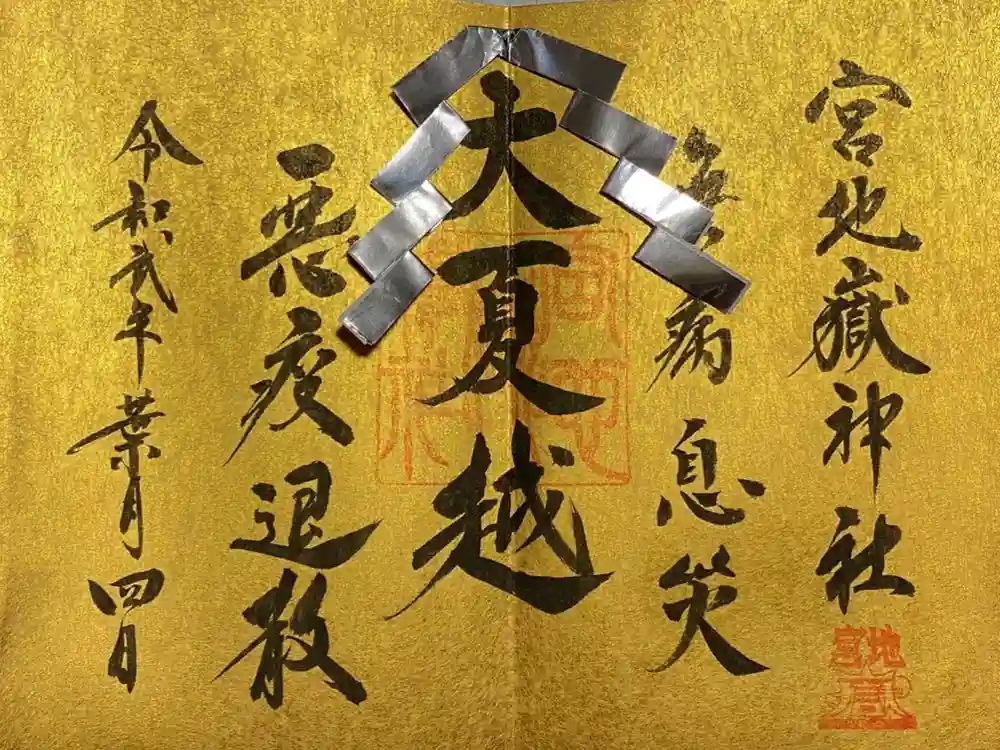 宮地嶽神社
無病息災
大夏越
悪疫退散
令和弐年葉月四日
宮地
宮